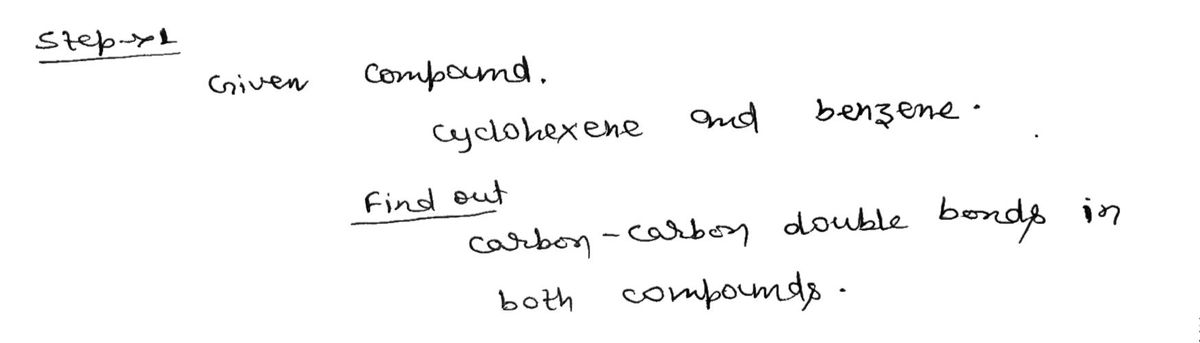 Step→1
Given compound.
cyclohexene and benzene.
Find out
carbon-carbon double bonds in
both compounds.